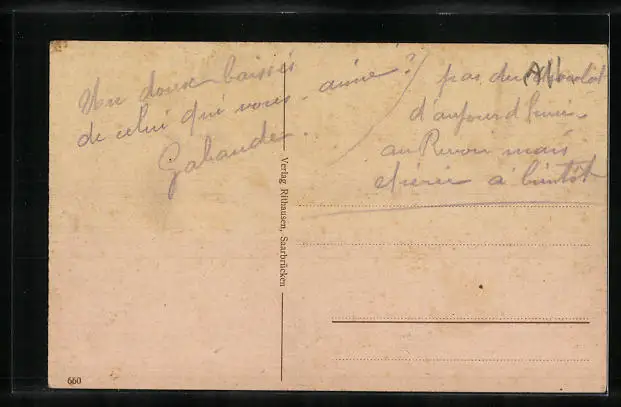 Un doux baiser
de celui qui vous aime ?
Gabaude.
pas du chocolat
d'aujourd'hui.
au Revoir mais
chérie à bientôt
Verlag Rithausen, Saarbrücken
660